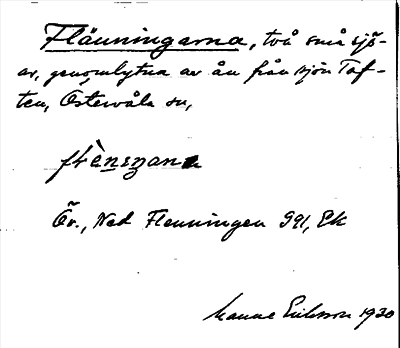 Fläuningarna, två små sjö-
ar, genomflytna av ån från sjön Tof-
ten, Östervåla sn,
Öv., Ned Flenningen G91, Ek
Manne Eriksson 1930